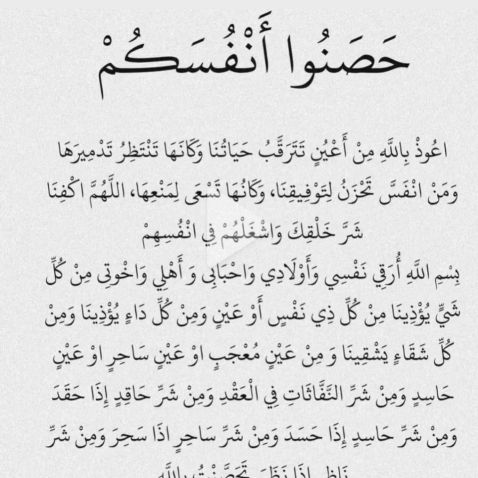 حَصَنُوا أَنْفُسَكُمْ
اعُوذْ بِاللَّهِ مِنْ أَعْيُنٍ تَتَرَقَّبُ حَيَاتُنَا وَكَانَهَا تَنْتَظِرُ تَدْمِيرَهَا
وَمَنْ انْفَسَّ تَحْزَنُ لِتَوْفِيقِنَا، وَكَانُهَا تَسْعَى لِمَنْعِهَا، اللَّهُمَّ اكْفِنَا
شَرَّ خَلْقِكَ وَاشْغَلْهُمْ فِي انْفُسِهِمْ
بِسْمِ اللَّهِ أُرَقِي نَفْسِي وَأَوْلَادِي وَاحْبَابِى وَ أَهْلِي وَاخْوتِى مِنْ كُلِّ
شَيٍّ يُؤْذِينَا مِنْ كُلِّ ذِي نَفْسٍ أَوْ عَيْنٍ وَمِنْ كُلِّ دَاءٍ يُؤْذِينَا وَمِنْ
كُلِّ شَقَاءٍ يَشْقِينَا وَ مِنْ عَيْنٍ مُعْجَبٍ اوْ عَيْنٍ سَاحِرٍ اوْ عَيْنٍ
حَاسِدٍ وَمِنْ شَرِّ النَّفَّاثَاتِ فِي الْعَقْدِ وَمِنْ شَرِّ حَاقِدٍ إِذَا حَقَدَ
وَمِنْ شَرِّ حَاسِدٍ إِذَا حَسَدَ وَمِنْ شَرِّ سَاحِرٍ اذَا سَحِرَ وَمِنْ شَرِّ
نَاظِرٍ اذَا نَظَرَ تَحَصَّنْتُ بِاللَّهِ